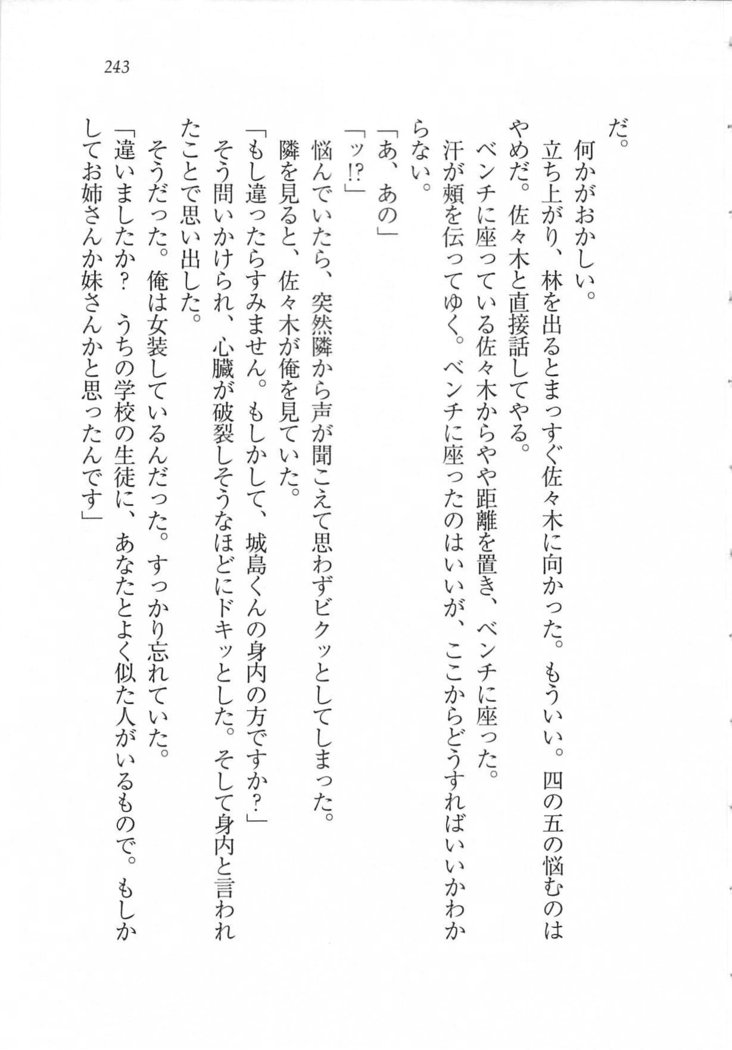 243
だ。
何かがおかしい。
立ち上がり、林を出るとまっすぐ佐々木に向かった。もういい。四の五の悩むのは
やめだ。佐々木と直接話してやる。
ベンチに座っている佐々木からやや距離を置き、ベンチに座った。
汗が頬を伝ってゆく。ベンチに座ったのはいいが、ここからどうすればいいかわか
らない。
「あ、あの」
「ッ!?」
悩んでいたら、突然隣から声が聞こえて思わずビクッとしてしまった。
隣を見ると、佐々木が俺を見ていた。
「もし違ったらすみません。もしかして、城島くんの身内の方ですか?」
そう問いかけられ、心臓が破裂しそうなほどにドキッとした。そして身内と言われ
たことで思い出した。
そうだった。俺は女装しているんだった。すっかり忘れていた。
「違いましたか? うちの学校の生徒に、あなたとよく似た人がいるもので。もしか
してお姉さんか妹さんかと思ったんです」